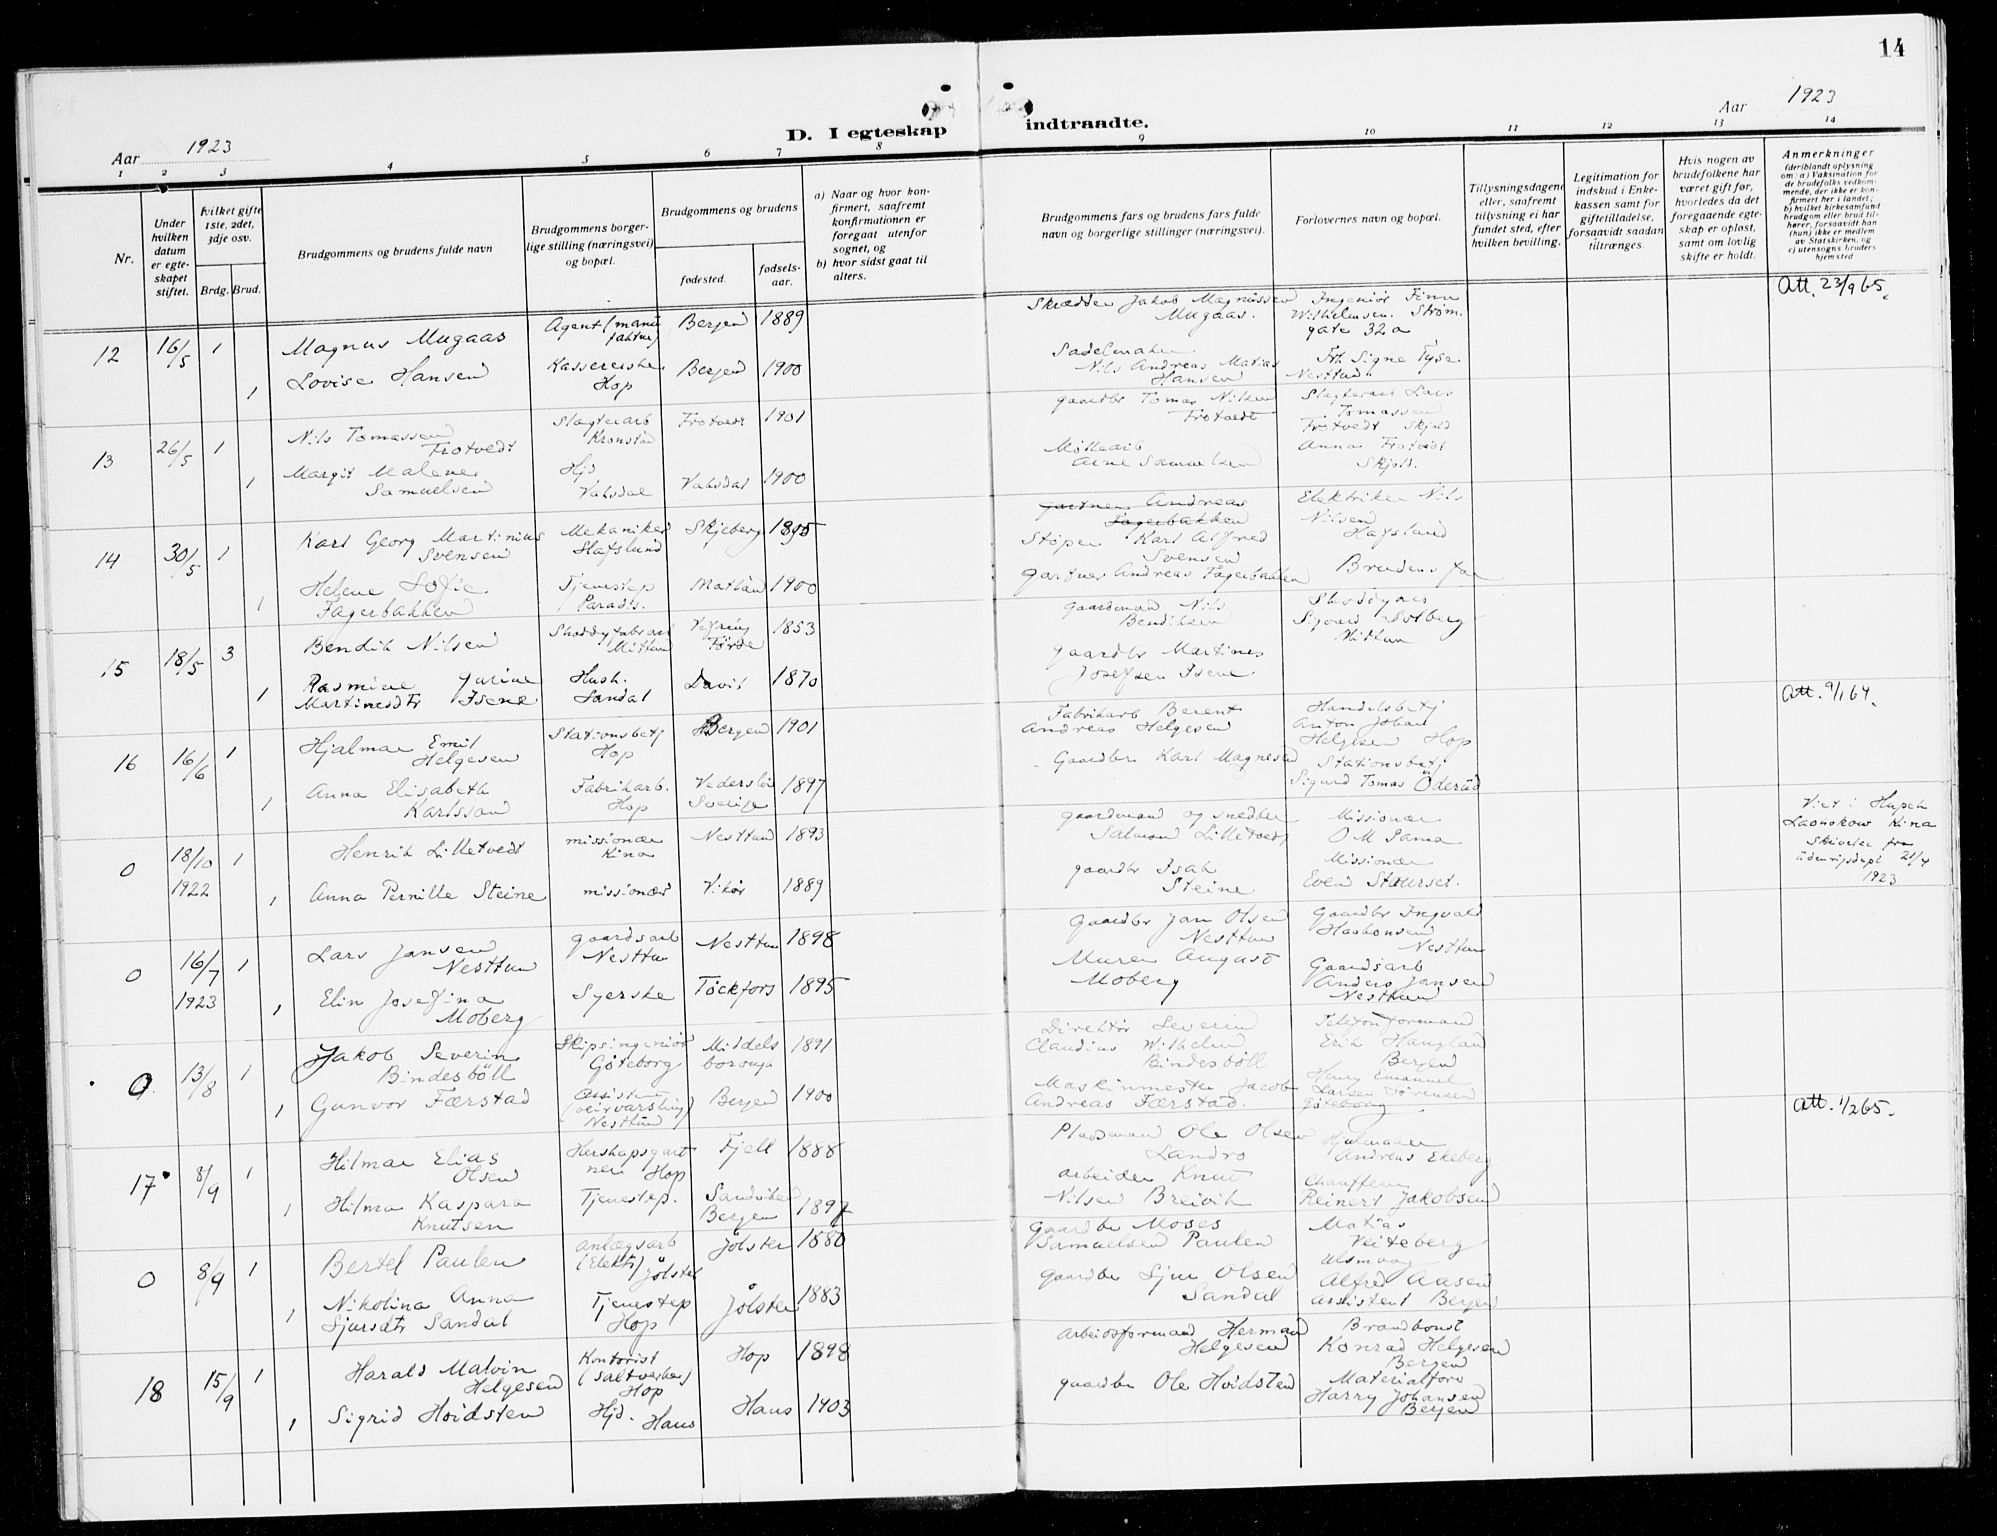 14
Aar 1923
D. I egteskap indtraadte.
Aar 1923
1 2 3 4 5 6 7 8 9 10 11 12 13 14
Nr.
Under hvilken datum er egteskapet stiftet.
hvilket gifte 1ste, 2det, 3dje osv.
Brdg. Brud.
Brudgommens og brudens fulde navn
Brudgommens borgerlige stilling (næringsvei) og bopæl.
Brudgommens og brudens
fødested.
fødselsaar.
a) Naar og hvor konfirmert, saafremt konfirmationen er foregaat utenfor sognet, og
b) hvor sidst gaat til alters.
Brudgommens fars og brudens fars fulde navn og borgerlige stillinger (næringsvei).
Forlovernes navn og bopæl.
Tillysningsdagene eller, saafremt tillysning ei har fundet sted, efter hvilken bevilling.
Legitimation for indskud i Enkekassen samt for giftetilladelse, forsaavidt saadan tiltrænges.
Hvis nogen av brudefolkene har været gift før, hvorledes da det foregaaende egteskap er opløst, samt om lovlig skifte er holdt.
Anmerkninger
(deriblandt oplysning om: a) Vaksination for de brudefolks vedkommende, der ikke er konfirmert her i landet; b) hvilket kirkesamfund brudgom eller brud tilhører, forsaavidt han (hun) ikke er medlem av Statskirken, og c) utensogns bruders hjemsted
12 16/5 1 Magnus Mugaas Agent (manufaktur) Bergen 1889 Skrædder Jakob Magnussen Mugaas. Ingeniør Finn Wilhelmsen. Strømgate 32a Att. 23/9 65.
1 Lovise Hansen Kassererske Hop Bergen 1900 Sadelmaker Nils Andreas Matias Hansen Frk Signe Nesttun
13 26/5 1 Nils Tomassen Frotvedt Slagterarb Kronstad Frotvedt 1901 gaardbr Tomas Nilsen Frotvedt Slagterarb Lars Tomassen Frotvedt Skjold
1 Margit Malene Samuelsen Hjd Vaksdal Vaksdal 1900 Møllearb Arne Samuelsen Anna Frotvedt Skjold.
14 30/5 1 Karl Georg Martinius Svensen Mekaniker Hafslund Skjeberg 1895 gartner Andreas Fagerbakken Støper Karl Alfred Svensen Elektriker Nils Nilsen Hafslund
1 Helene Sofie Fagerbakken Tjenestep Paradis. 1900 Gartner Andreas Fagerbakken Brudens far
15 18/5 3 Bendik Nilsen Shoddyfabrarb Midttun Førde 1853 gaardmand Nils Bendiksen Sjovard Solberg Midttun
1 Rasmine Gurine Martinesdtr Isene Hush. Sandal Davik 1870 gaardbr Martines Josefsen Isene
16 16/6 1 Hjalmar Emil Helgesen Stationsbetj Hop Bergen 1901 Fabrikarb Berent Andreas Helgesen Handelsbetj Anton Johan Helgesen Hop Att. 9/1 64.
1 Anna Elisabeth Karlsson Fabrikarb. Hop Sverige 1897 Gaardbr Karl Magnesen Stationsbetj Sigurd Tomas Öderud
0 18/10 1922 1 Henrik Lilletvedt missionær Kina Nesttun 1893 gaardmand og snedker Salmon Lilletvedt Missionær O M Sama Viet i Hupeh Laohokow Kina Skrivelse fra Udenrigsdept 21/4 1923
1 Anna Pernille Steine missionær Vikør 1889 gaardbr Isak Steine Missionær Even Staurset.
0 16/7 1923 1 Lars Jansen Nesttun gaardsarb Nesttun Nesttun 1898 Gaardbr Jan Olsen Nesttun Gaardbr Ingvald Haakonsen Nesttun
1 Elin Josefina Moberg Syerske Töckfors 1895 Murer August Moberg Gaardsarb Anders Jansen Nesttun
0 13/8 1 Jakob Severin Bindesböll Skipsingeniør Göteborg Middelsborough 1891 Direktør Severin Claudius Wilhelm Bindesböll Telefonformand Erik Haugland Bergen
1 Gunvor Færstad Assistent (veirvarsling) Nesttun Bergen 1900 Maskinmester Jacob Andreas Færstad. Henry Emanuel Larsen Sörensen Göteborg
17 8/9 1 Hilmar Elias Olsen Herskapsgartner Hop Fjell 1888 Pladsmand Ole Olsen Landro Andreas Ekeberg Att. 1/2 65.
1 Hilma Kaspara Knutsen Tjenestep. Sandviken Bergen 1897 arbeider Knut Nilsen Breivik Chauffeur Reinert Jakobsen
0 8/9 1 Bertel Paulen Anlægsarb (Elektr) Jølster Jølster 1880 Gaardbr Moses Samuelsen Paulen Matias Veiteberg Alsmoag
1 Nikolina Anna Sjursdtr Sandal Tjenestep Hop Jølster 1883 gaardbr Sjur Olsen Sandal Alfred Aasen assistent Bergen
18 15/9 1 Harald Malvin Helgesen Kontorist (Saltverket) Hop Hop 1898 Arbeidsformand Herman Helgesen Brandbonst Konrad Helgesen Bergen
1 Sigrid Hoidsten Hjd. Haus Haus 1903 gaardbr Ole Hoidsten Materialforv Harry Johansen Bergen